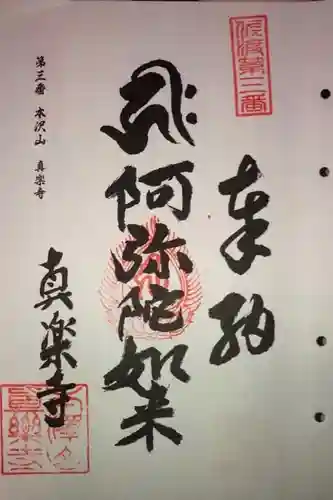 佐渡第三番
奉納
阿弥陀如来
真楽寺
第三番 本沢山 真楽寺